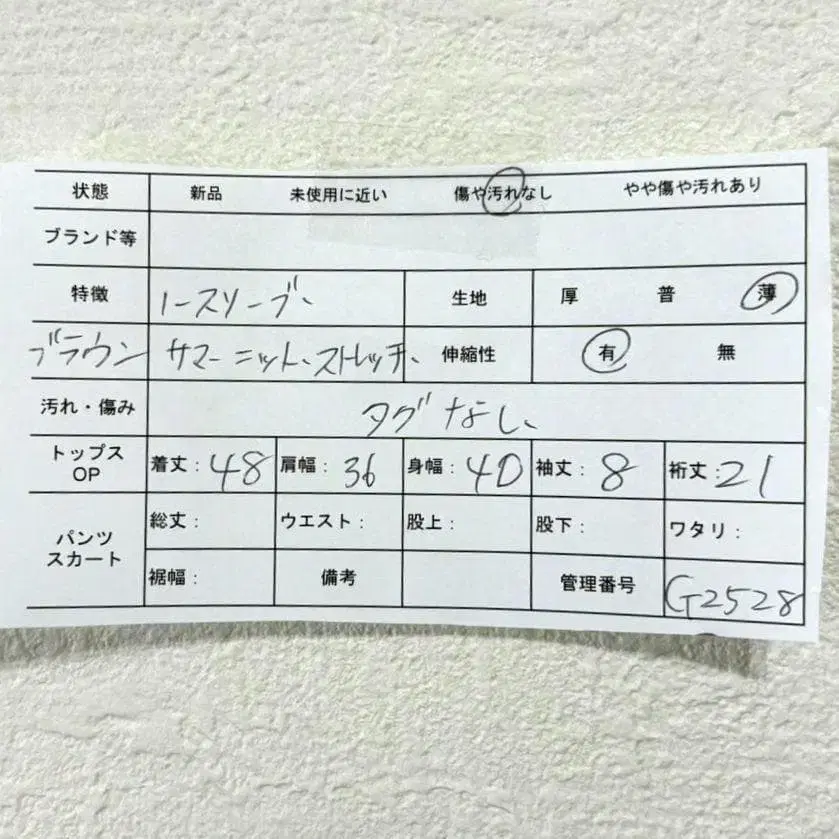 状態 新品 未使用に近い 傷や汚れなし やや傷や汚れあり
ブランド等
特徴 ノースリーブ、 生地 厚 普 薄
ブラウン サマーニット、ストレッチ、 伸縮性 有 無
汚れ・傷み タグなし、
トップス OP 着丈：48 肩幅：36 身幅：40 袖丈：8 裄丈：21
パンツ スカート 総丈： ウエスト： 股上： 股下： ワタリ：
裾幅： 備考 管理番号 G2528